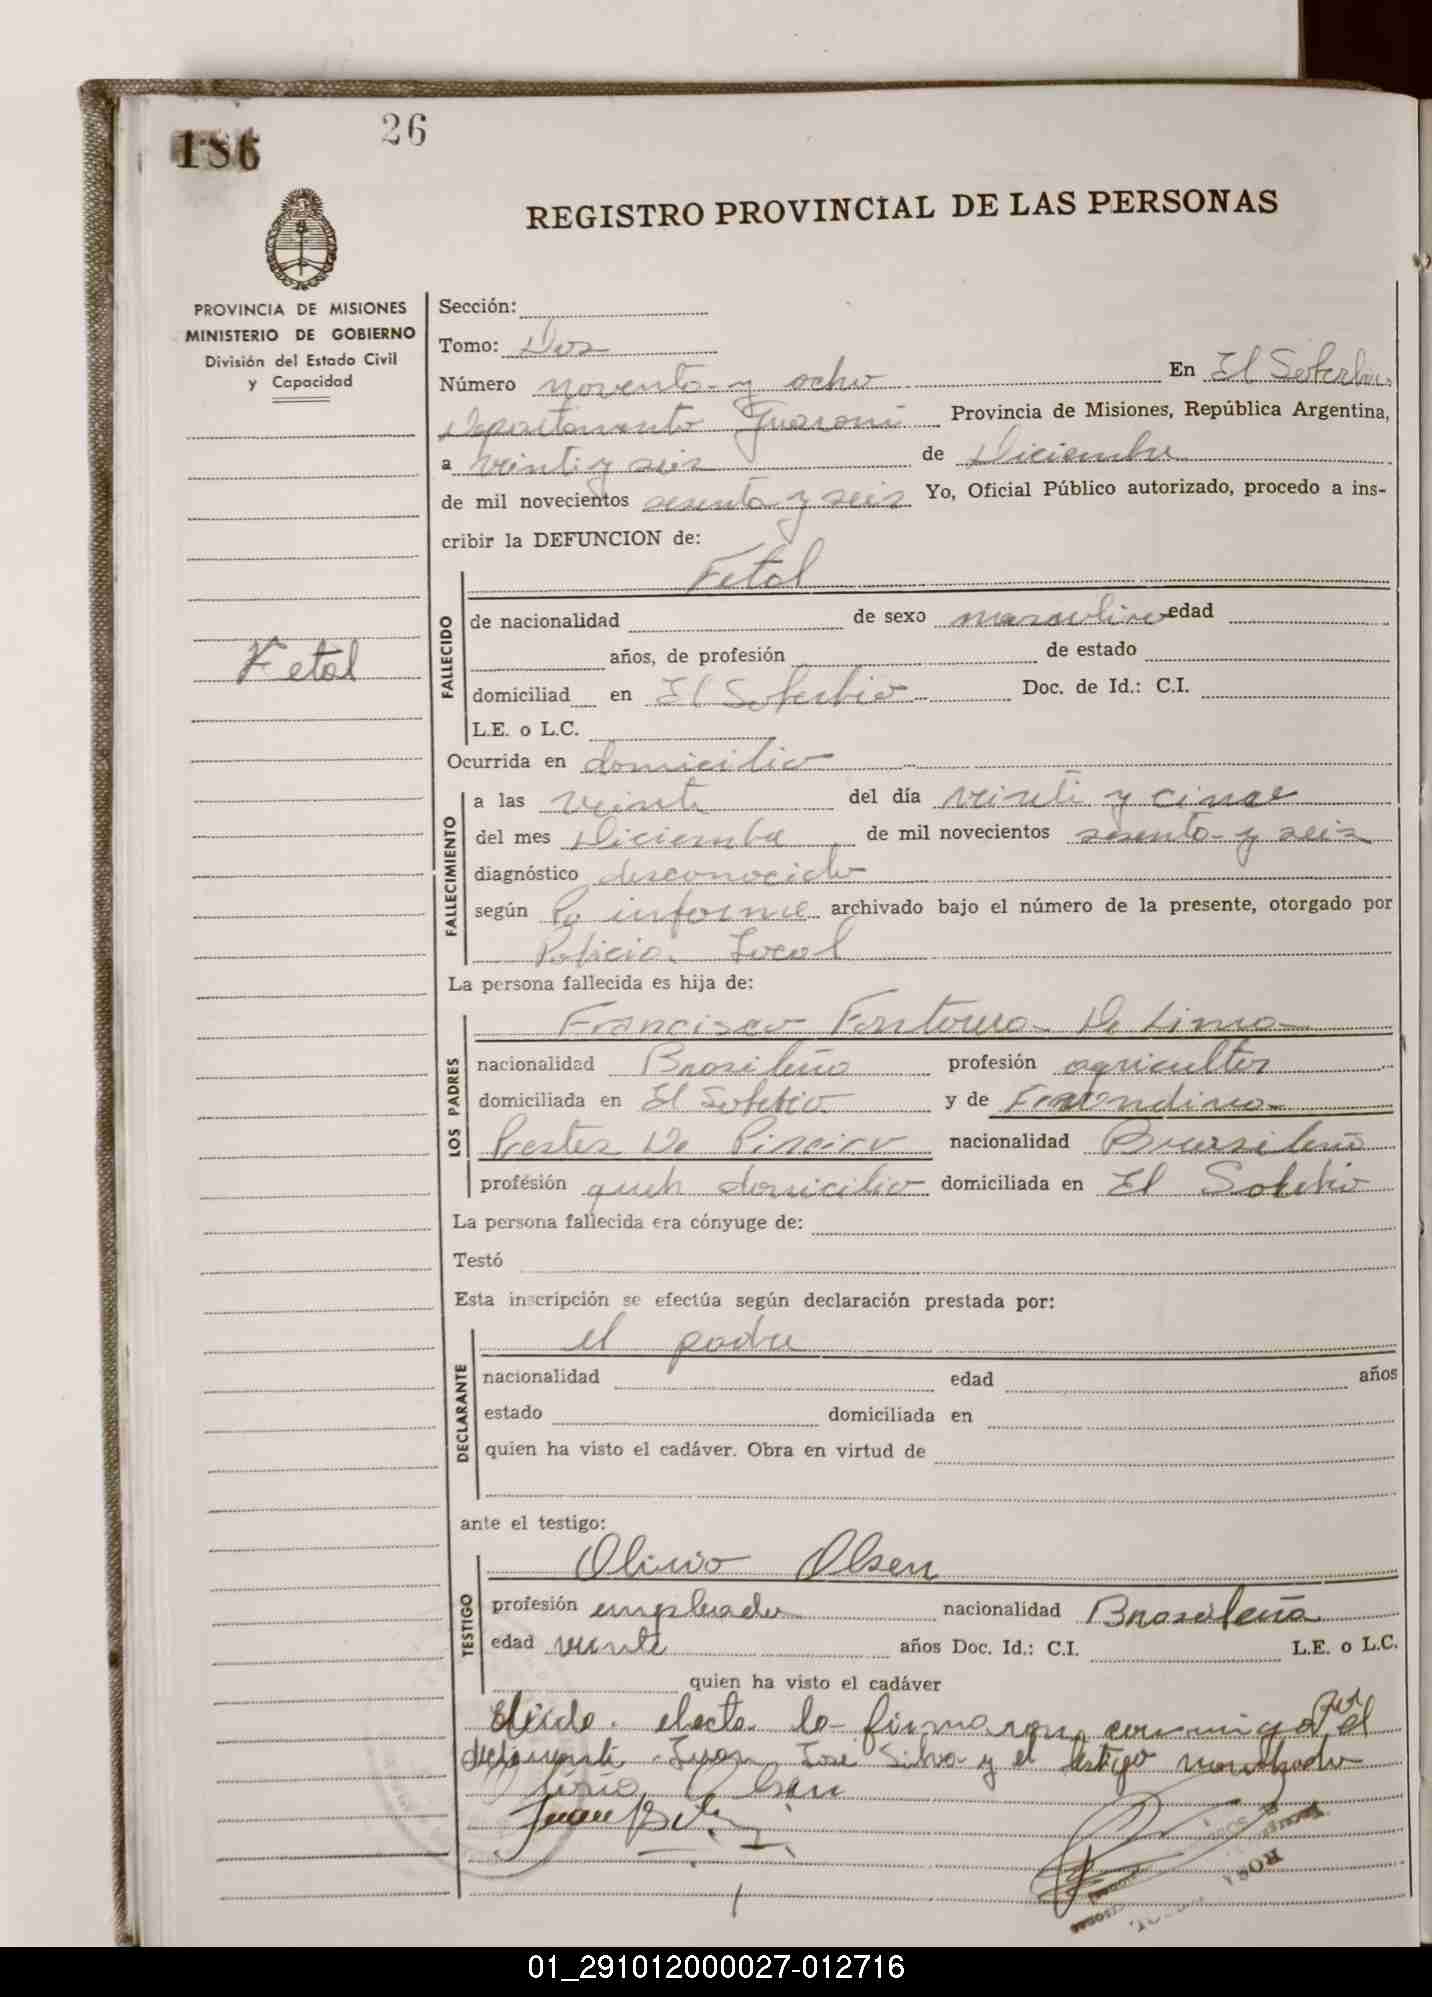 186
26
REGISTRO PROVINCIAL DE LAS PERSONAS
PROVINCIA DE MISIONES
MINISTERIO DE GOBIERNO
División del Estado Civil
y Capacidad
Fetal
Sección:
Tomo: Dos
Número noventa y ocho En El Soberbio
Departamento Guaraní Provincia de Misiones, República Argentina,
a veinti y seis de Diciembre
de mil novecientos sesenta y seis Yo, Oficial Público autorizado, procedo a ins-
cribir la DEFUNCION de:
Fetal
FALLECIDO
de nacionalidad de sexo masculino edad
años, de profesión de estado
domiciliad en El Soberbio Doc. de Id.: C.I.
L.E. o L.C.
Ocurrida en domicilio
FALLECIMIENTO
a las veinte del día veinti y cinco
del mes Diciembre de mil novecientos sesenta y seis
diagnóstico desconocido
según informe archivado bajo el número de la presente, otorgado por
Policia Local
La persona fallecida es hija de:
LOS PADRES
Francisco Fontoura De Lima
nacionalidad Brasileño profesión agricultor
domiciliada en El Soberbio y de
Prestes De nacionalidad Brasileña
profesión domicilio domiciliada en El Soberbio
La persona fallecida era cónyuge de:
Testó
Esta inscripción se efectúa según declaración prestada por:
DECLARANTE
el padre
nacionalidad edad años
estado domiciliada en
quien ha visto el cadáver. Obra en virtud de
ante el testigo:
TESTIGO
Olivio Olsen
profesión empleado nacionalidad Brasileña
edad veinte años Doc. Id.: C.I. L.E. o L.C.
quien ha visto el cadáver
Leida el acta la firmaron conmigo por el
declarante Juan José Silva y el testigo nombrado
Olsen
Juan
01_291012000027-012716